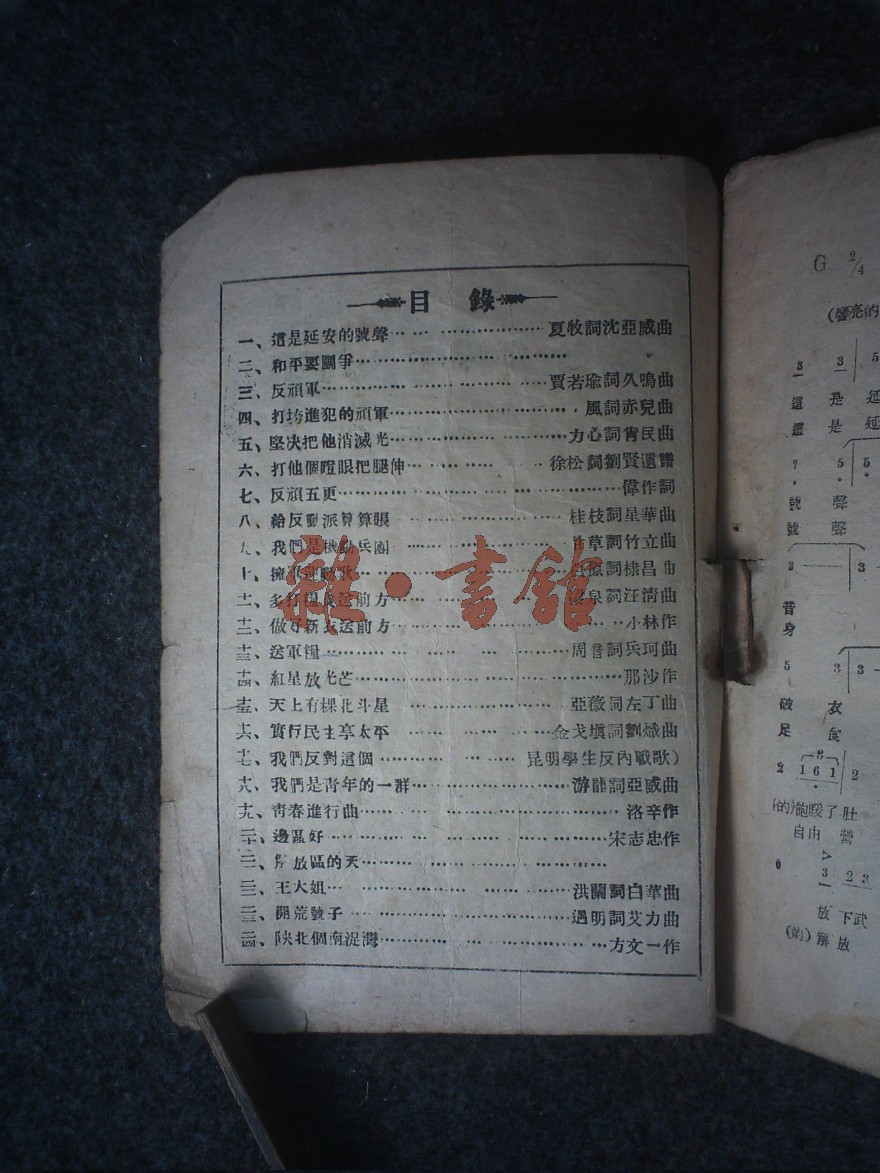 目 錄
一、這是延安的號聲……夏牧詞沈亞威曲
二、和平要鬭爭……
三、反頑軍……賈若瑜詞久鳴曲
四、打垮進犯的頑軍……風詞赤兒曲
五、堅决把他消滅光……力心詞宵民曲
六、打他個瞪眼把腿伸……徐松詞劉賢遺譜
七、反頑五更……偉作詞
八、給反動派算算賬……桂枝詞星華曲
九、我們是機動兵團……草詞竹立曲
十、擁軍運動歌……詞棣昌曲
十一、多打糧食送前方……泉詞汪淸曲
十二、做好新衣送前方……小林作
十三、送軍糧……周音詞兵珂曲
十四、紅星放光芒……那沙作
十五、天上有棵北斗星……亞薇詞左丁曲
十六、實行民主享太平……金戈塡詞劉熾曲
十七、我們反對這個……昆明學生反內戰歌）
十八、我們是靑年的一群……游龍詞亞威曲
十九、靑春進行曲……洛辛作
二十、邊區好……宋志忠作
二一、解放區的天……
二二、王大姐……洪蘭詞白華曲
二三、開荒號子……過明詞艾力曲
二四、陝北個南泥灣……方文一作
雜·書館
G 2/4
(響亮的
3 3 | 5
這 是 延
這 是 延
7 5 | 5
號 聲
號 聲
3 3
昔
身
5 3 | 3
破 衣
足 食
2 1 6 1 | 2
(的)飽暖了肚
自由 營
0 3 2 3
放 下 武
(的)解 放